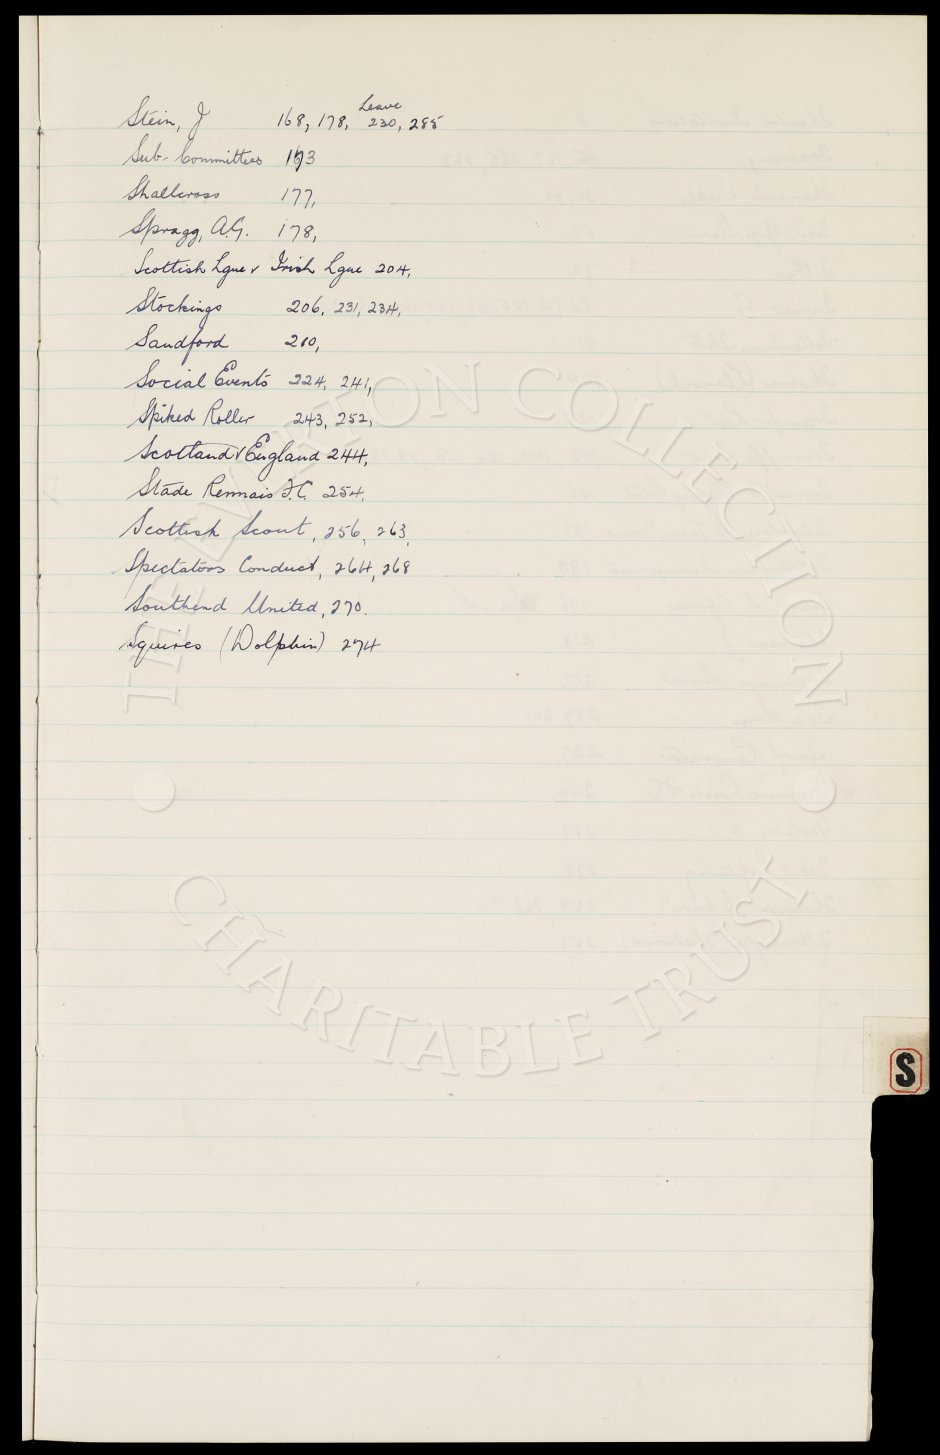 Leave
Stein, J 168, 178, 230, 285
Sub-Committees 173
Shallcross 177,
Spragg, A.G. 178,
Scottish Lgue v Irish Lgue 204,
Stockings 206, 231, 234,
Sandford 210,
Social Events 224, 241,
Spiked Roller 243, 252,
Scotland v England 244,
Stade Rennais F.C. 254,
Scottish Scout, 256, 263,
Spectators Conduct, 264, 268
Southend United, 270.
Squires (Dolphin) 274
THE EVERTON COLLECTION
CHARITABLE TRUST
S